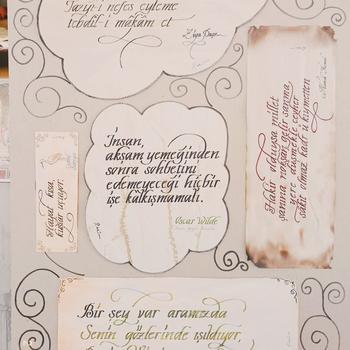 Tazyi-i nefes eyleme
tebdil-i makâm et
Ziya Paşa
İnsan,
akşam yemeğinden
sonra sohbetini
edemeyeceği hiçbir
işe kalkışmamalı.
Oscar Wilde
Hayat kısa,
kuşlar uçuyor.
Hakir olduysa millet
şanına noksan gelir sanma
yere düşmekle cevher
sakıt olmaz kadr ü kıymetten
Namık Kemal
Bir şey var aramızda
Senin gözlerinde ışıldıyor,